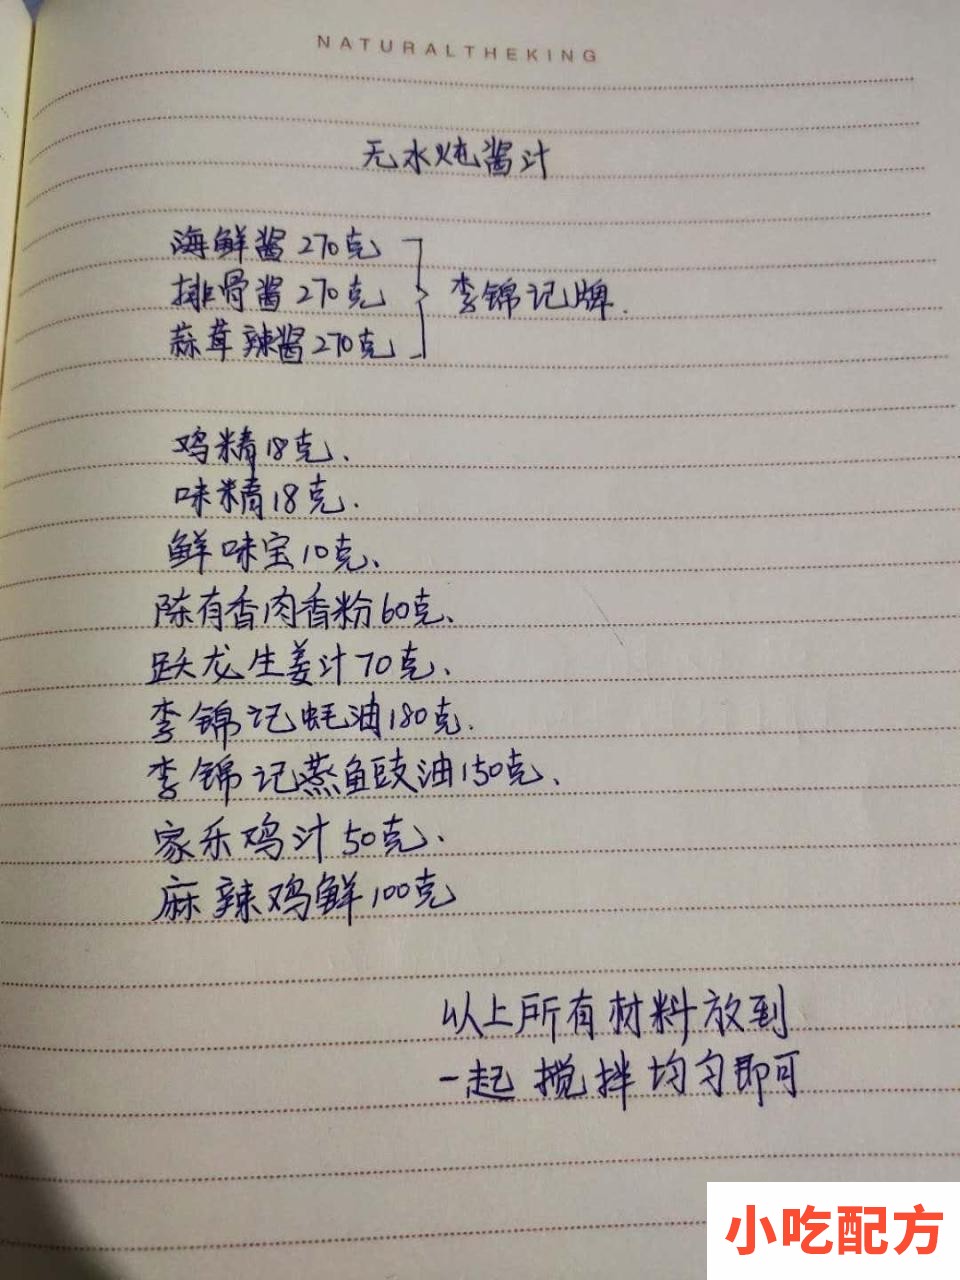 NATURALTHEKING
无水炖酱汁
海鲜酱270克
排骨酱270克
李锦记牌.
蒜茸辣酱270克
鸡精18克、
味精18克.
鲜味宝10克、
陈有香肉香粉60克、
跃龙生姜汁70克、
李锦记蚝油180克.
李锦记蒸鱼豉油150克、
家乐鸡汁50克、
麻辣鸡鲜100克
以上所有材料放到
一起搅拌均匀即可
小吃配方